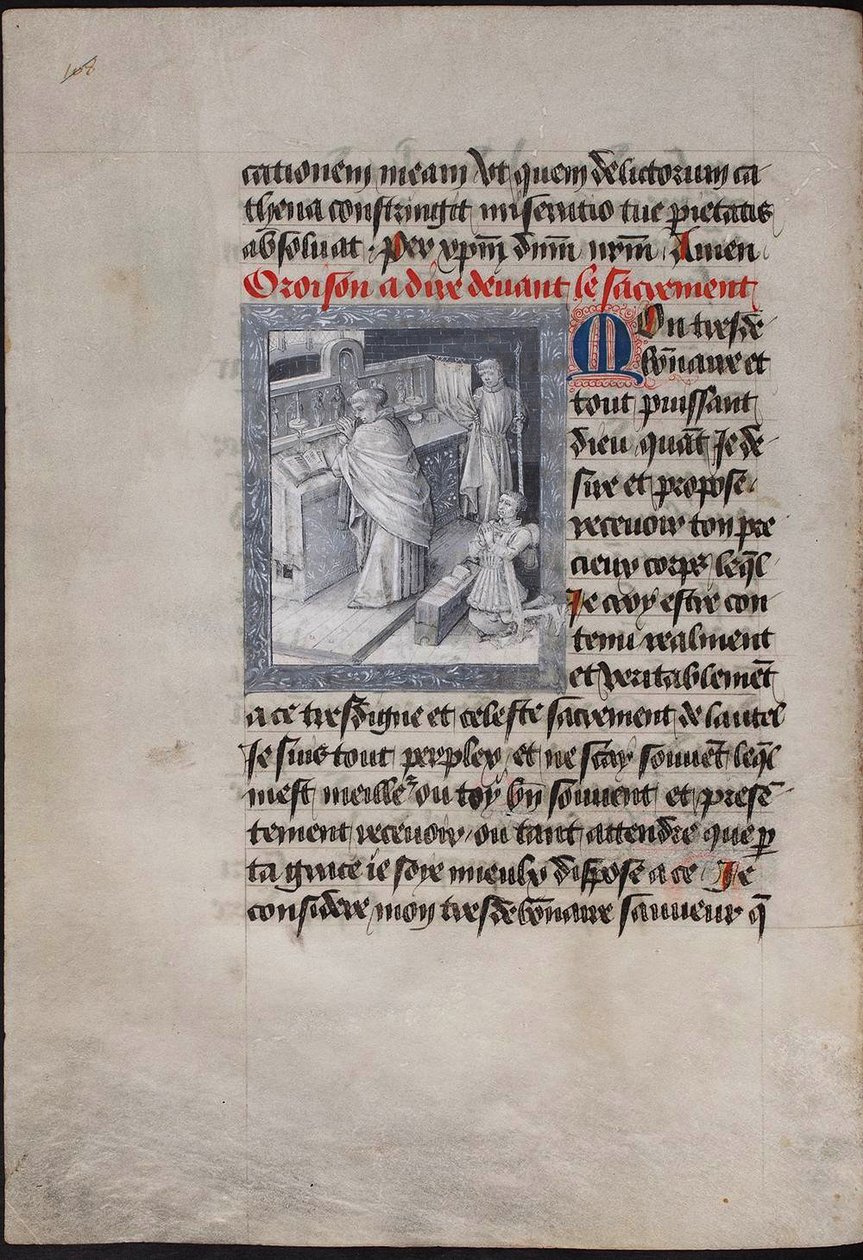 cationem meam Vt quem delictorum ca
thena constringit miseratio tue pietatis
absoluat . Per xpm dnm nrm Amen
Oroison a dire deuant le sacrement
MOn tresde
bonnaire et
tout puissant
dieu quāt Je de
sire et propose
receuoir ton pre
cieux corps leq̄l
Je croy estre con
tenu realment
et veritablemēt
a ce tresdigne et celeste sacrement de lautel
Je suis tout perplex et ne scay souuēt leq̄l
mest meille᷑ ou toy bn̄ souuent et presē
tement receuoir ou tant attendre que ꝑ
ta grace ie soye mieulx dispose a ce Je
considere mon tresdebōnaire sauueur q̄